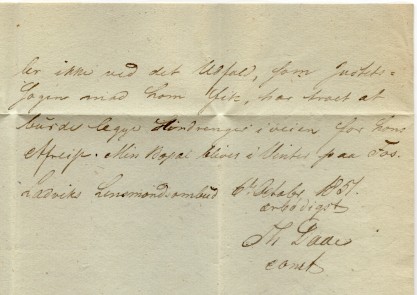 ler ikke ved det Udfald, som Justits-
sagen mod ham fik, har troet at
burde legge Hindringer i veien for hans
Afreise. Min Bopæl bliver i Vinter paa Fos.
Ladviks Lensmandsombud 6te Octobr 1857.
ærbødigst
Th Daae
const.